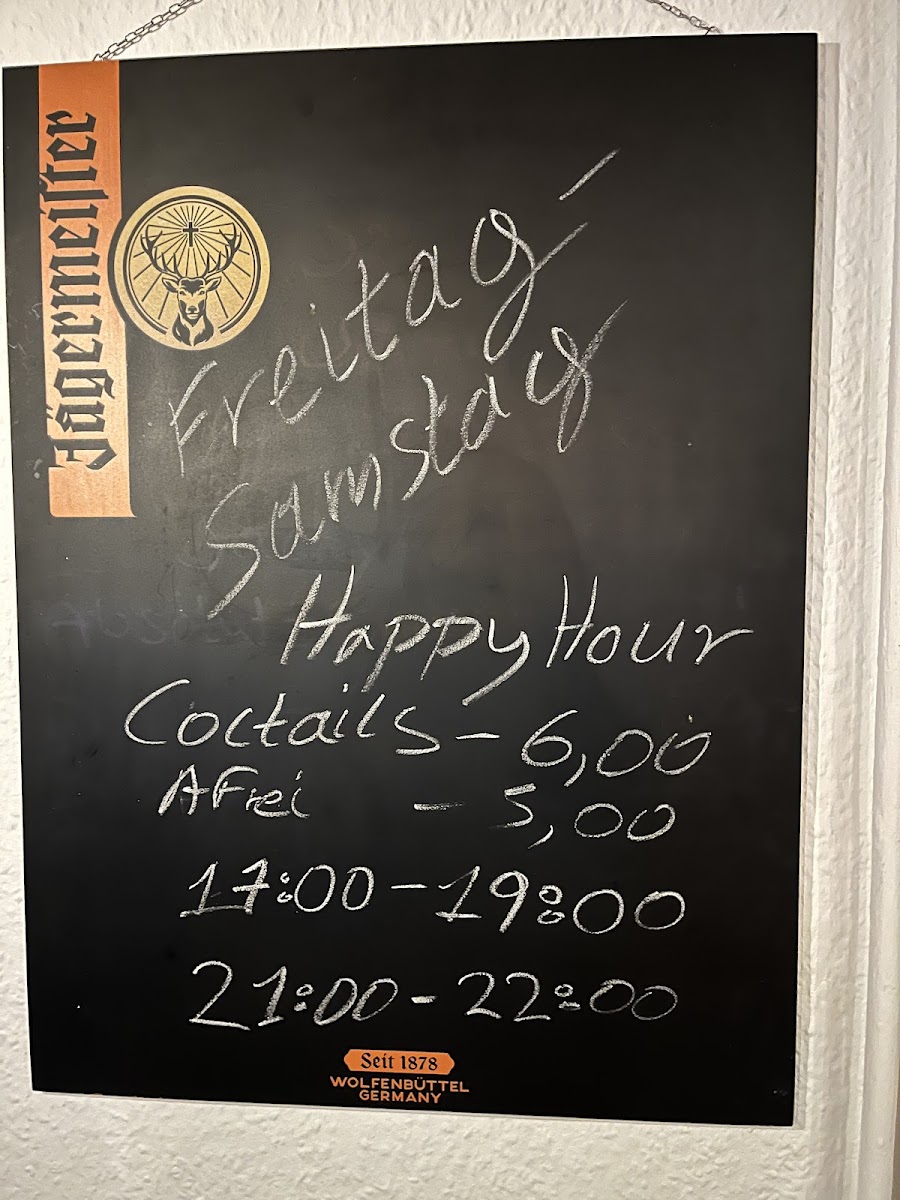 Jägermeister
Freitag -
Samstag
Happy Hour
Coctails - 6,00
AFrei - 5,00
17:00 - 19:00
21:00 - 22:00
Seit 1878
WOLFENBÜTTEL
GERMANY